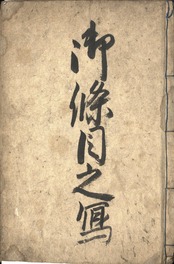 御條目之寫